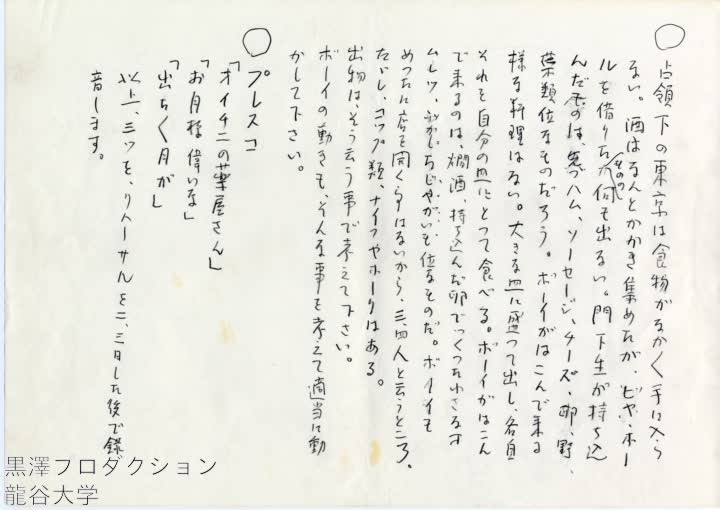 ○
占領下の東京は食物がなかく手に入ら
ない。酒はなんとかかき集めたが、ビヤ・ホー
ルを借りたものの何も出ない。門下生が持ち込
んだものは、ハム、ソーセージ、チーズ、卵、野
菜類位なものだろう。ボーイがはこんで来る
様な料理はない。大きな皿に盛つて出し、各自
それを自分の皿にとつて食べる。ボーイがはこん
で来るのは、燗酒、持ち込んだ卵でつくつたわさなオ
ムレツ、ふかしたぢゃがいも位なものだ。ボーイも
めつたに店を開くらはないから、三、四人と云うところ。
たゞし、コツプ類、ナイフやホークはある。
出物は、そう云う事で考えて下さい。
ボーイの動きも、そんな事を考えて適当に動
かして下さい。
○
プレスコ
「オイチニの薬屋さん」
「お月様偉いな」
「出ちく月が」
以上、三ツを、リハーサルを二、三日した後で録
音します。
黒澤プロダクション
龍谷大学